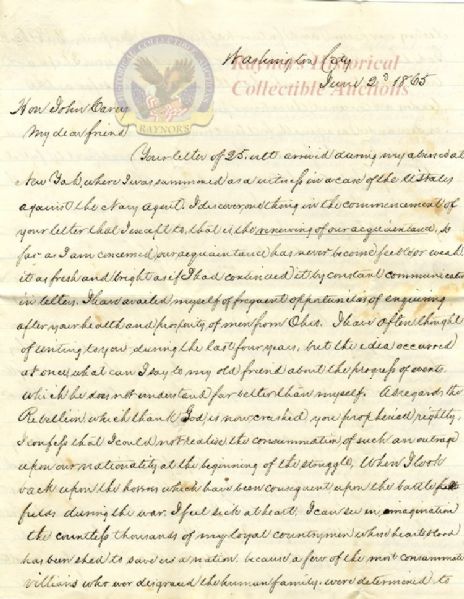 Washington City
June 2d 1865
Raynor's Historical
Collectible Auctions
HISTORICAL COLLECTIBLE AUCTIONS
RAYNOR'S
Hon John Carey
My dear friend
Your letter of 25. ult arrived during my absence at
New York, where I was summoned as a witness in a case of the U States
against the Navy Agent. I discover one thing in the commencement of
your letter that I except to, that is the renewing of our acquaintance, so
far as I am concerned our acquaintance has never become feeble or weak
it as fresh and bright as if I had continued it by constant communication
in letters. I have availed myself of frequent opportunities of enquiring
after your health and prosperity of men from Ohio. I have often thought
of writing to you, during the last four years, but the idea occurred
at once, what can I say to my old friend about the progress of events
which he does not understand far better than myself. As regards the
Rebellion which thank God is now crushed, you prophesied rightly,
I confess that I could not realise the consummation of such an outrage
upon our nationality at the beginning of the struggle, When I look
back upon the horrors which have been consequent upon the battle
fields during the war. I feel sick at heart. I can see in imagination
the countless thousands of my loyal countrymen whose hearts blood
has been shed to save us a nation, because a few of the most consummate
villians who ever disgraced the human family, were determined to